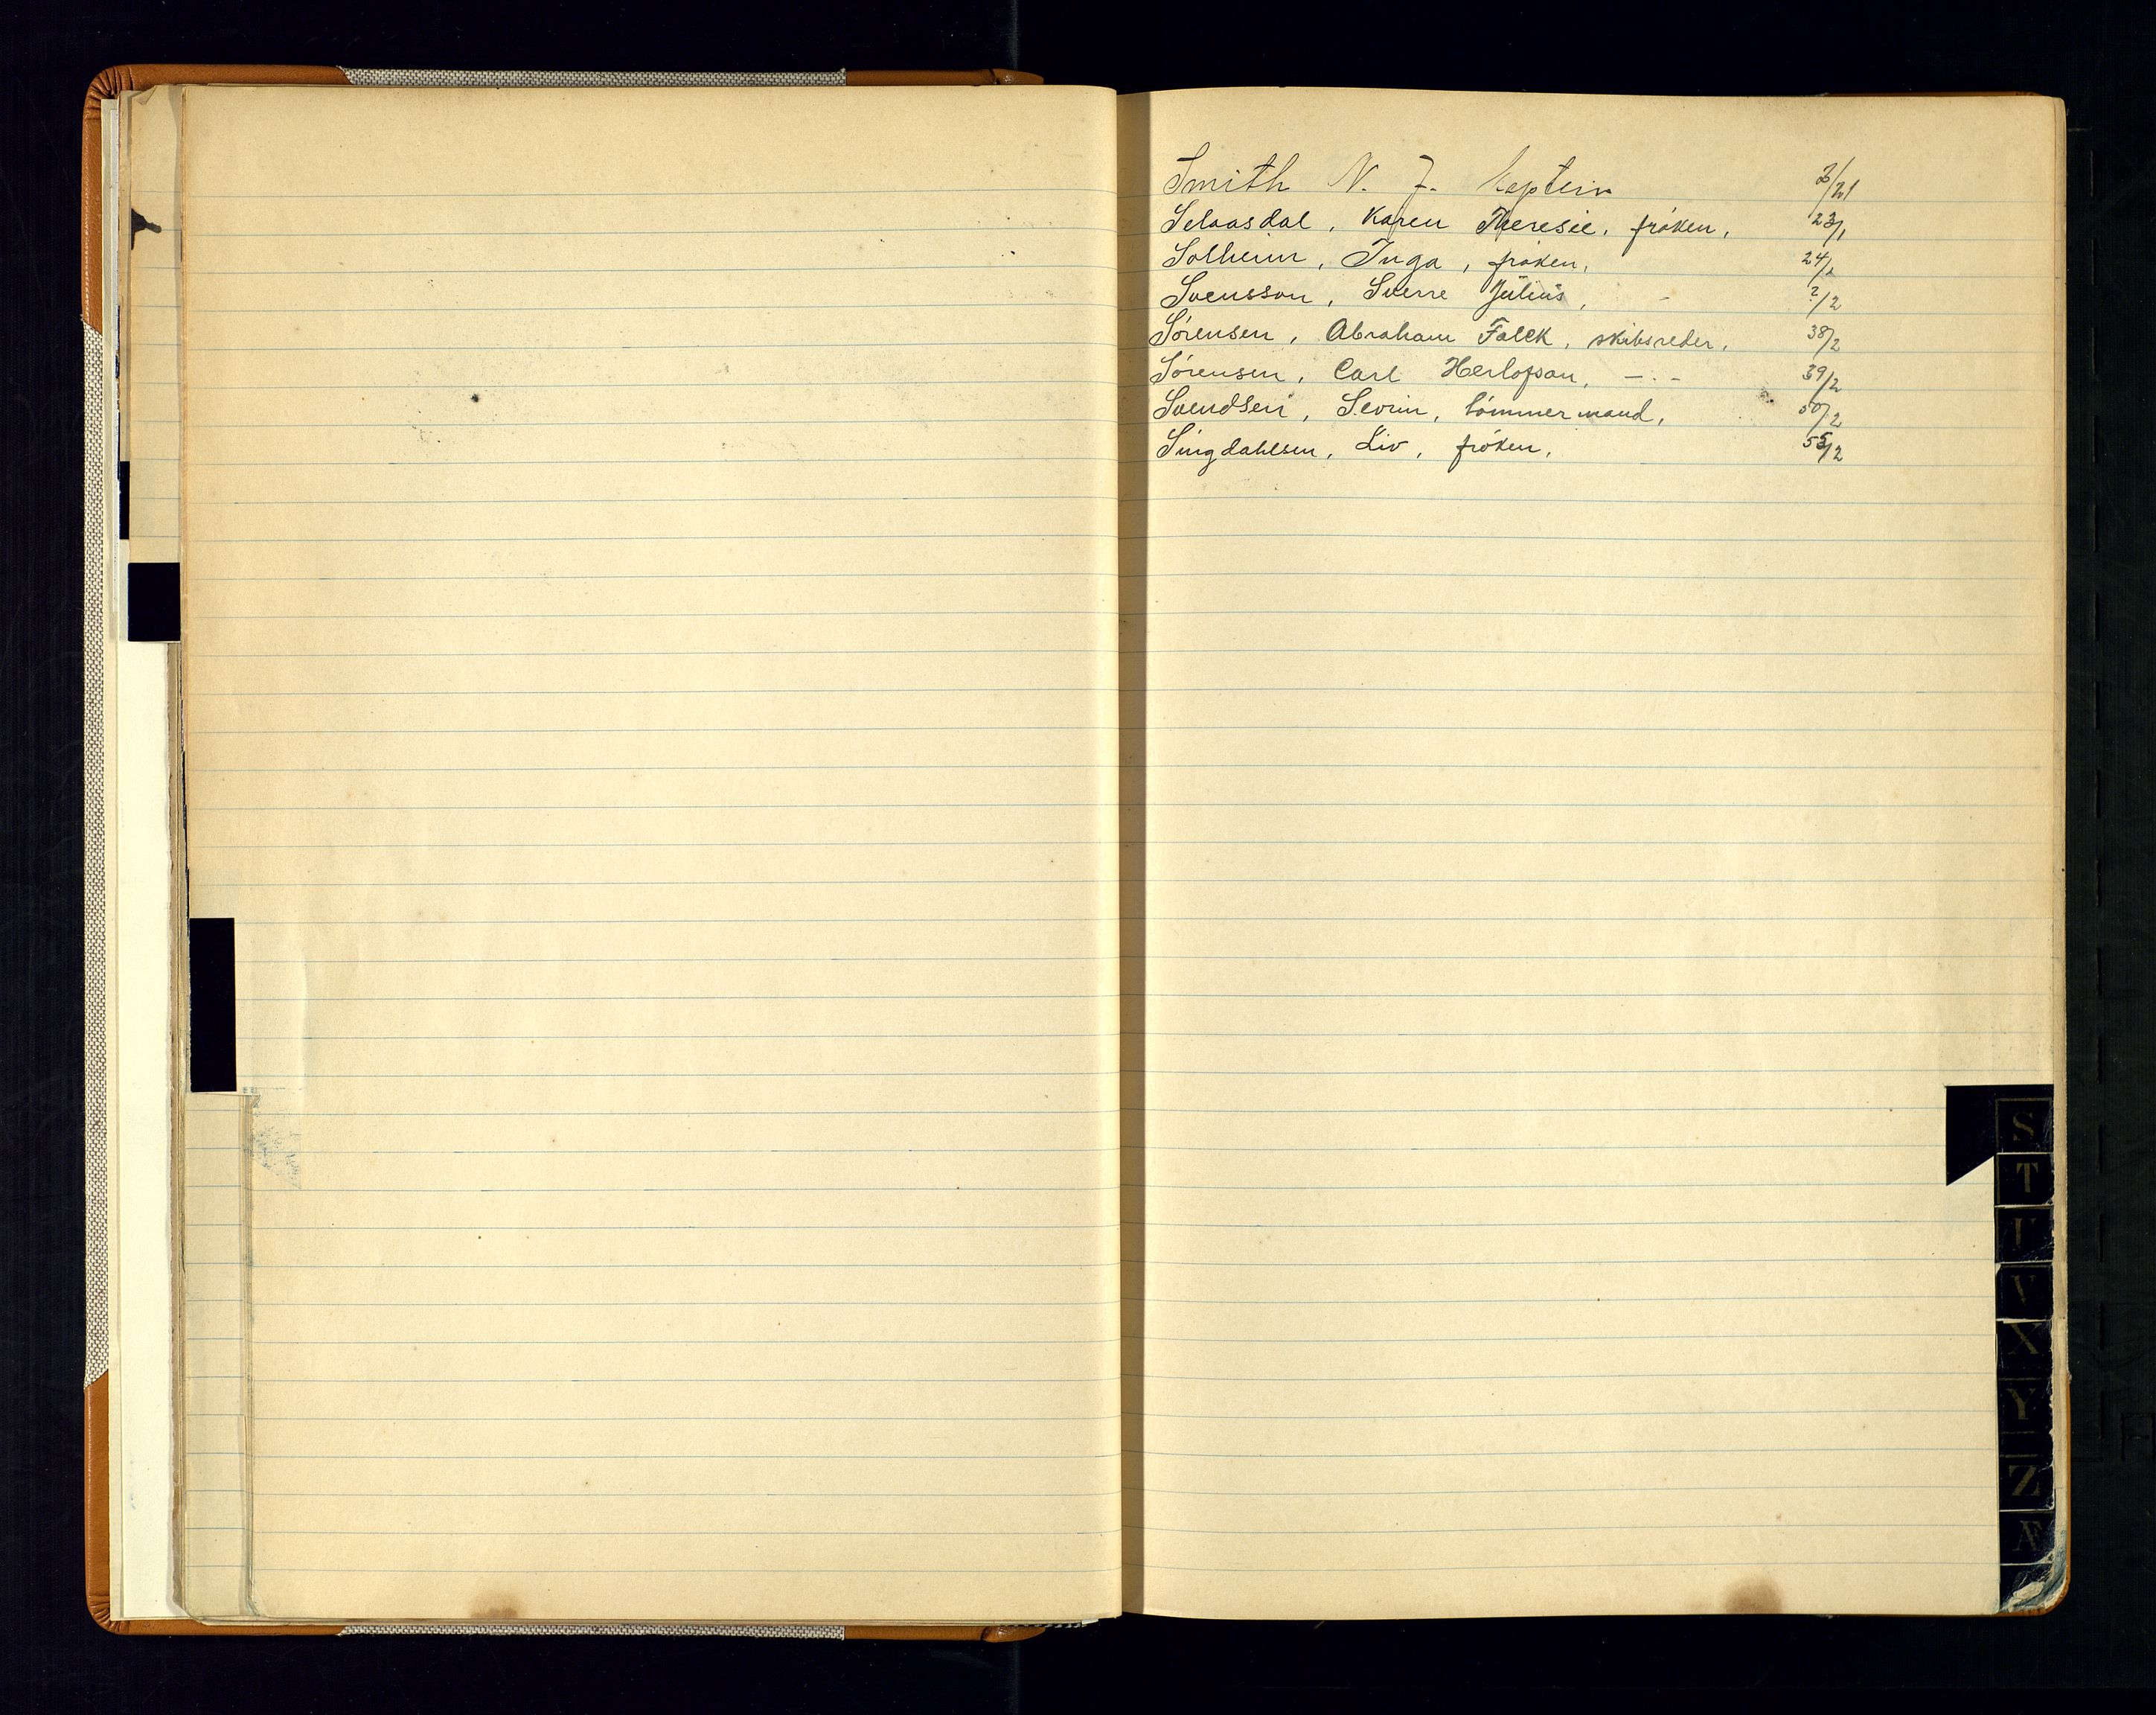 Smith N. J. Captein
Selaasdal, Karen Theresie, frøken, 23/1
Solheim, Inga, frøken, 24/1
Svensson, Sverre Julius, - ?/2
Sørensen, Abraham Falck, skibsreder, 38/2
Sørensen, Carl Herlofson, -.- 39/2
Svendsen, Sevrin, tømmermand, 50/2
Singdahlsen, Liv, frøken, 55/2
S
T
U
V
X
Y
Z
Æ